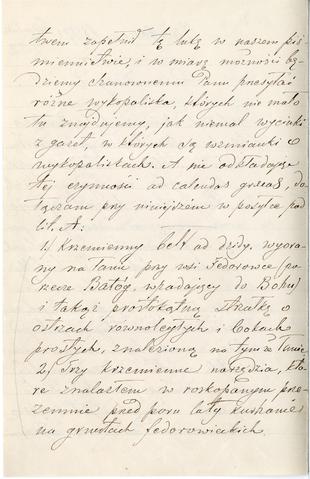 twem zapełnić tę lukę w naszem piś-
miennictwie, i w miarę możności bę-
dziemy Szanownemu Panu przesyłać
różne wykopaliska, których nie mało
tu znajdujemy, jak niemal wycinki
z gazet, w których są wzmianki o
wykopaliskach. A nie odkładając
tej czynności ad calendas graecas, do-
łączam przy niniejszém w posyłce pod
lit. A:
1) Krzemienny belt od dzidy, wyora-
ny na łanu przy wsi Fedorowce (po-
rzecze Batóg, wpadający do Bohu)
i takąż prostokątną sztukę o
ostrzach równoległych i bokach
prostych, znalezioną na tymże łanie
2) Trzy krzemienne narzędzia, któ-
re znalazłem w rozkopanym prze-
zemnie przed paru laty kurhanie
na gruntach fedorowieckich.